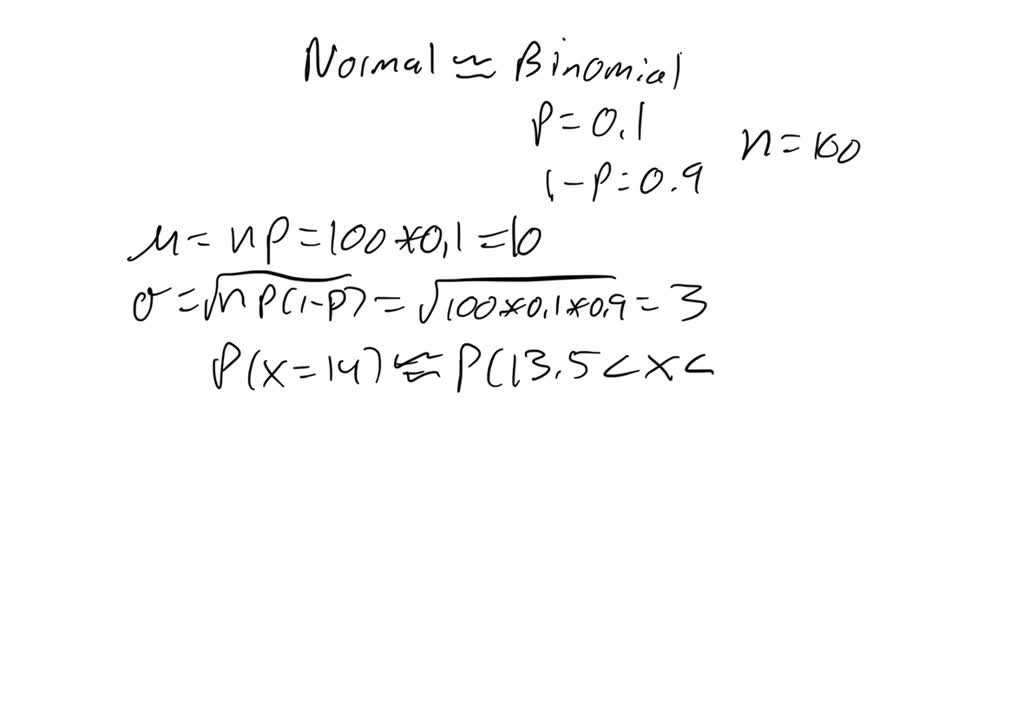 Normal ≃ Binomial
p = 0.1
n = 100
1-p = 0.9
μ = np = 100*0,1 = 10
σ = √np(1-p) = √100*0,1*0,9 = 3
P(x=14) ≈ P(13.5<x<